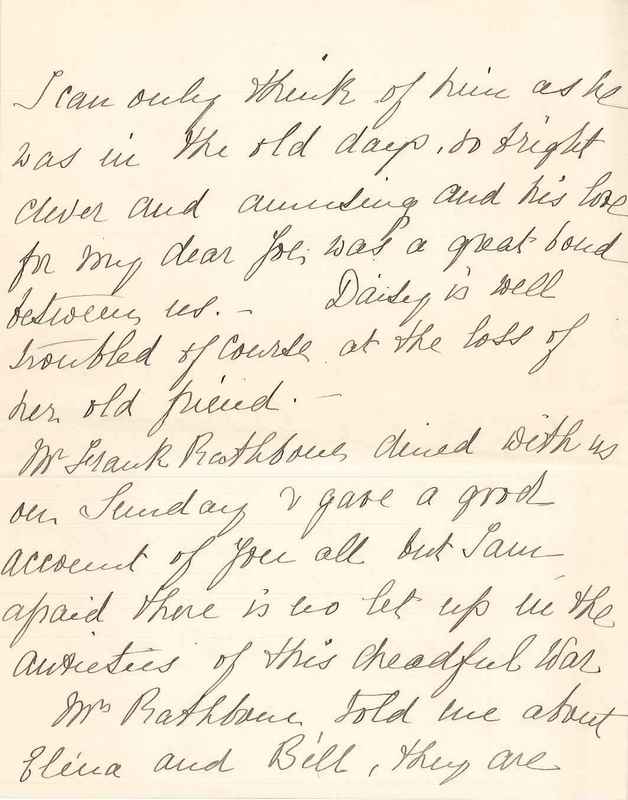 I can only think of him as he
was in the old days, so bright
clever and amusing and his love
for my dear Joe, was a great bond
between us. - Daisy is well
troubled of course at the loss of
her old friend. -
Mr Frank Rathbone dined with us
on Sunday & gave a good
account of you all but I am
afraid there is no let up in the
anxieties of this dreadful War
Mrs Rathbone told me about
Elena and Bill, they are